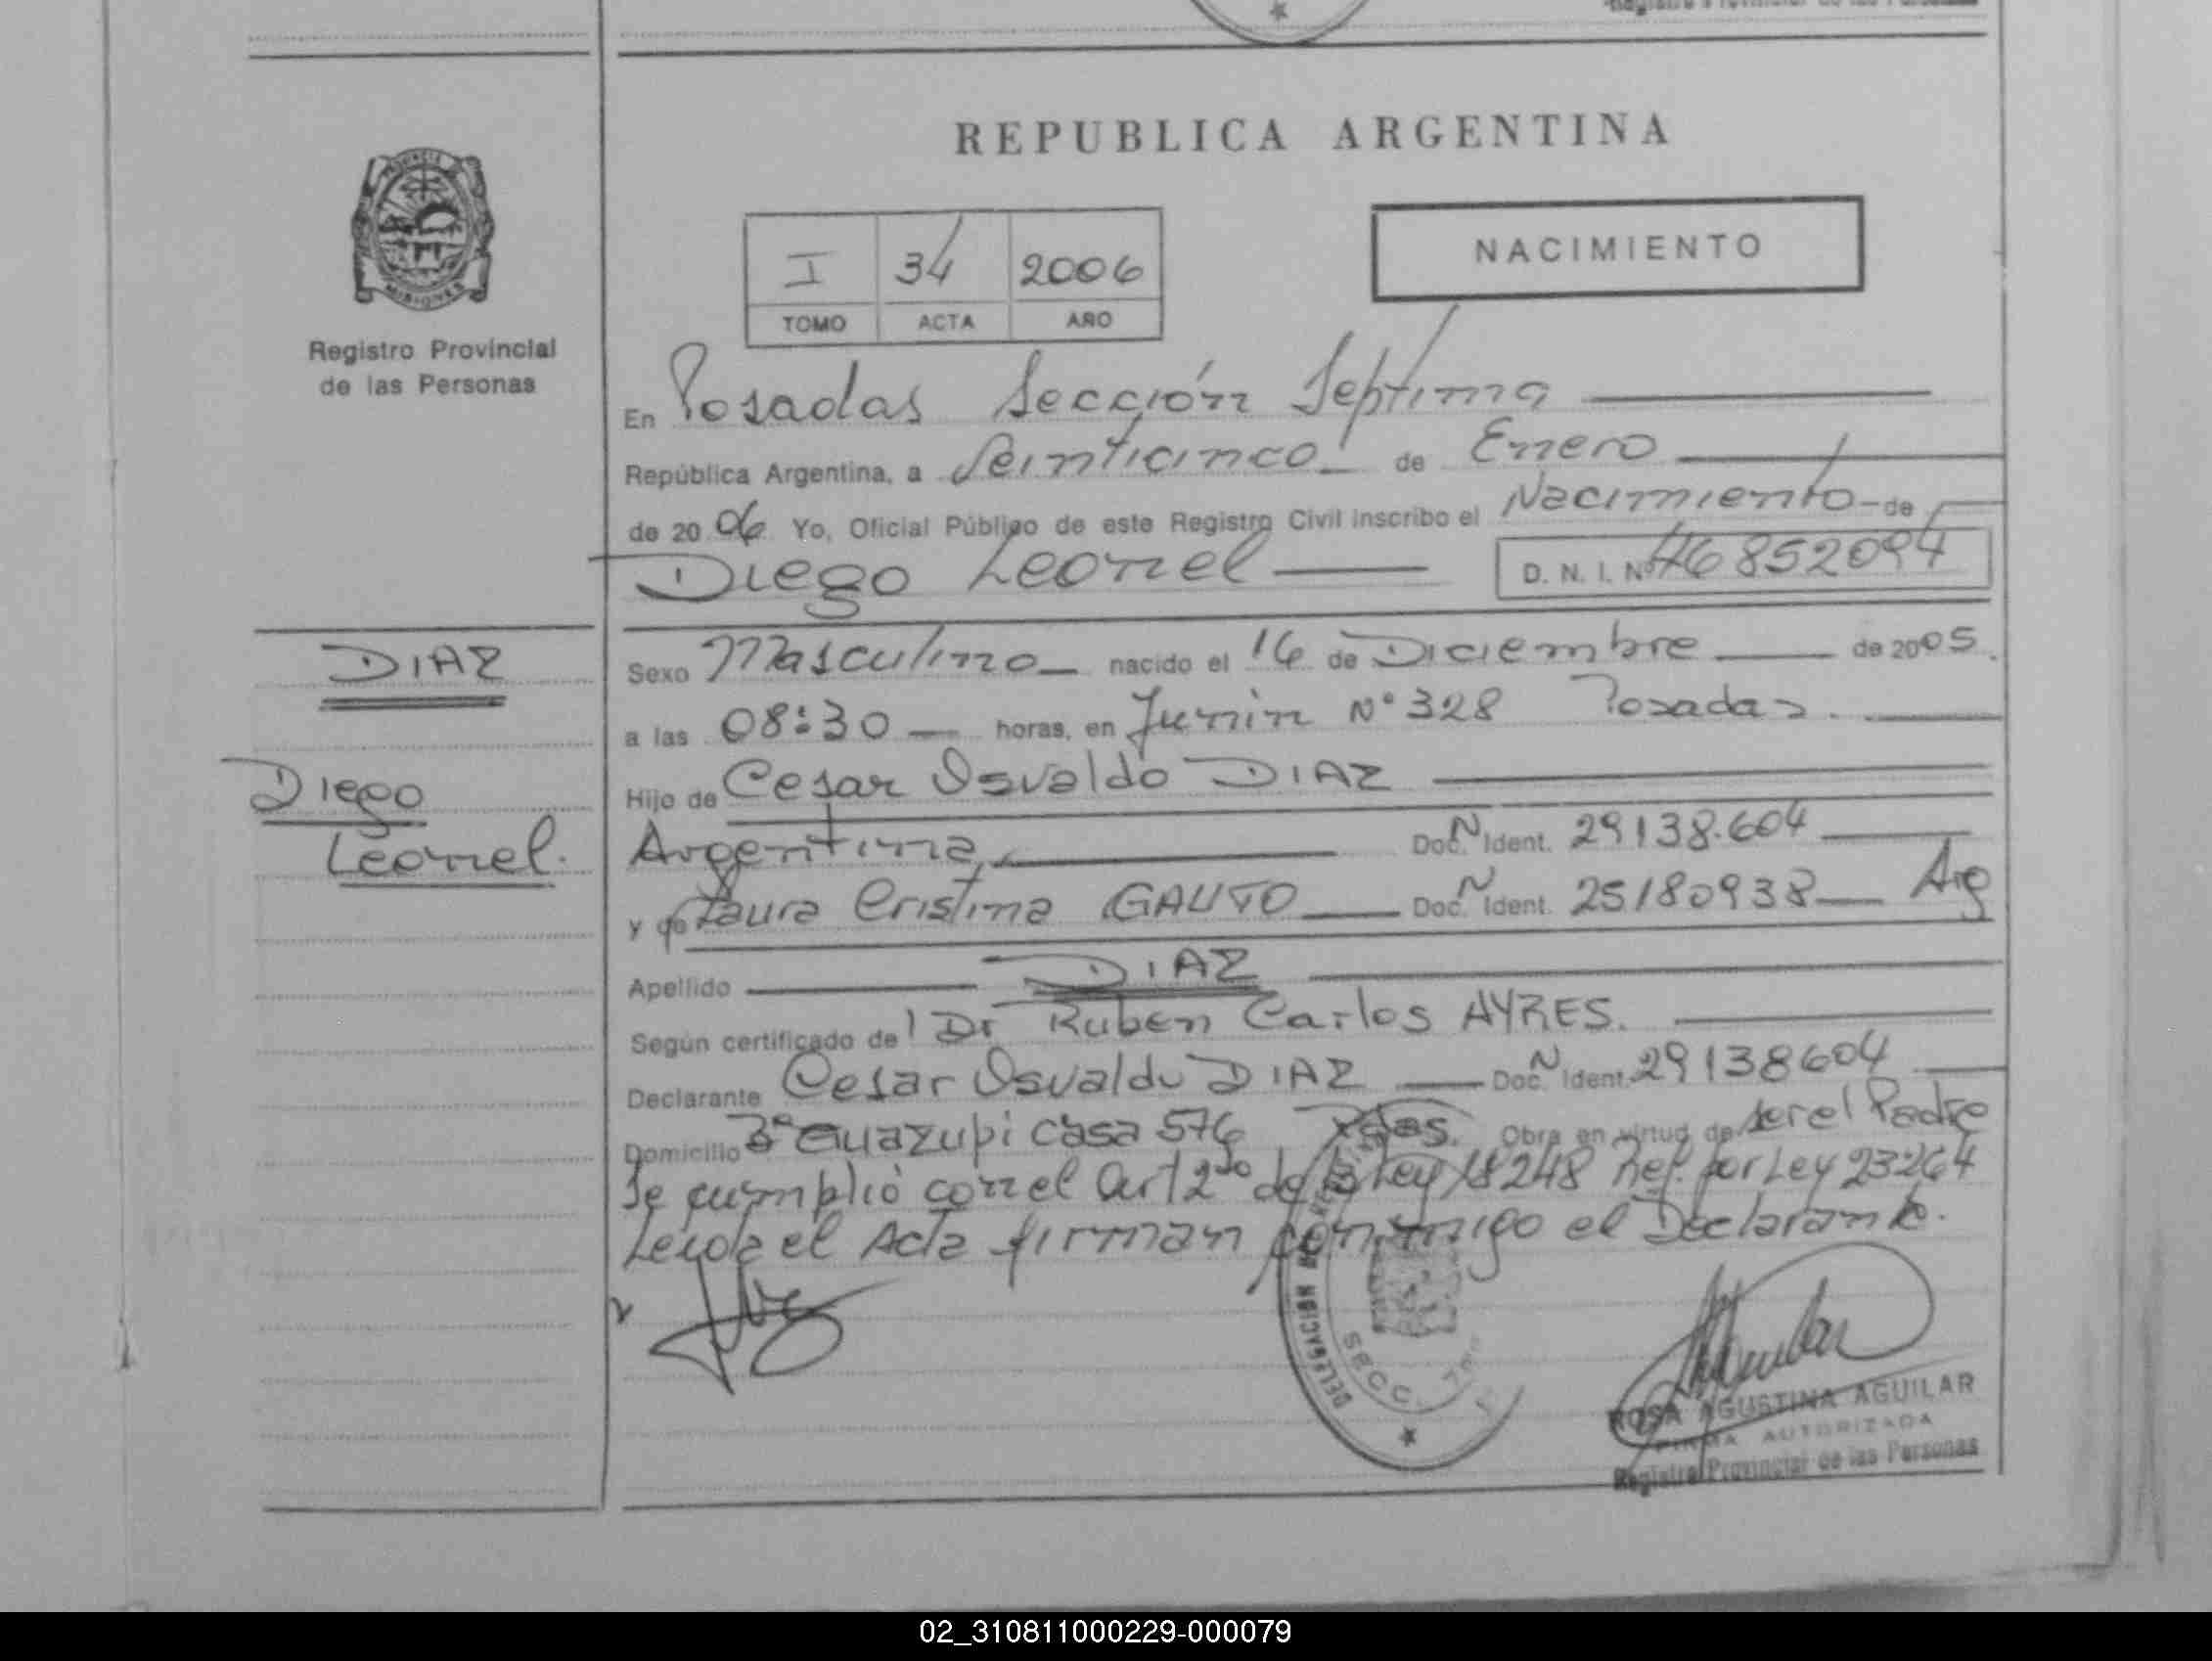 REPUBLICA ARGENTINA
PROVINCIA
MISIONES
Registro Provincial
de las Personas
I 34 2006
TOMO ACTA AÑO
NACIMIENTO
En Posadas Sección Septima
República Argentina, a Veinticinco de Enero
de 2006 Yo, Oficial Público de este Registro Civil inscribo el Nacimiento de
Diego Leonel D. N. I. Nº 46852094
DIAZ
Diego
Leonel.
Sexo Masculino nacido el 16 de Diciembre de 2005.
a las 08:30 horas, en Junin Nº 328 Posadas.
Hijo de Cesar Osvaldo DIAZ
Argentina Doc. N Ident. 29138.604
y de Laura Cristina GAUTO Doc. N Ident. 25180938 Arg
Apellido DIAZ
Según certificado de Dr Ruben Carlos AYRES.
Declarante Cesar Osvaldo DIAZ Doc. N Ident. 29138604
Domicilio Guazupi casa 576 Pdas. Obra en virtud de ser el Padre
Se cumplió con el Art 2do de la Ley 18248 Ref. por Ley 23264
Leida el Acta firman conmigo el Declarante.
DELEGACION
SECC.
ROSA AGUSTINA AGUILAR
FIRMA AUTORIZADA
Registro Provincial de las Personas
02_310811000229-000079